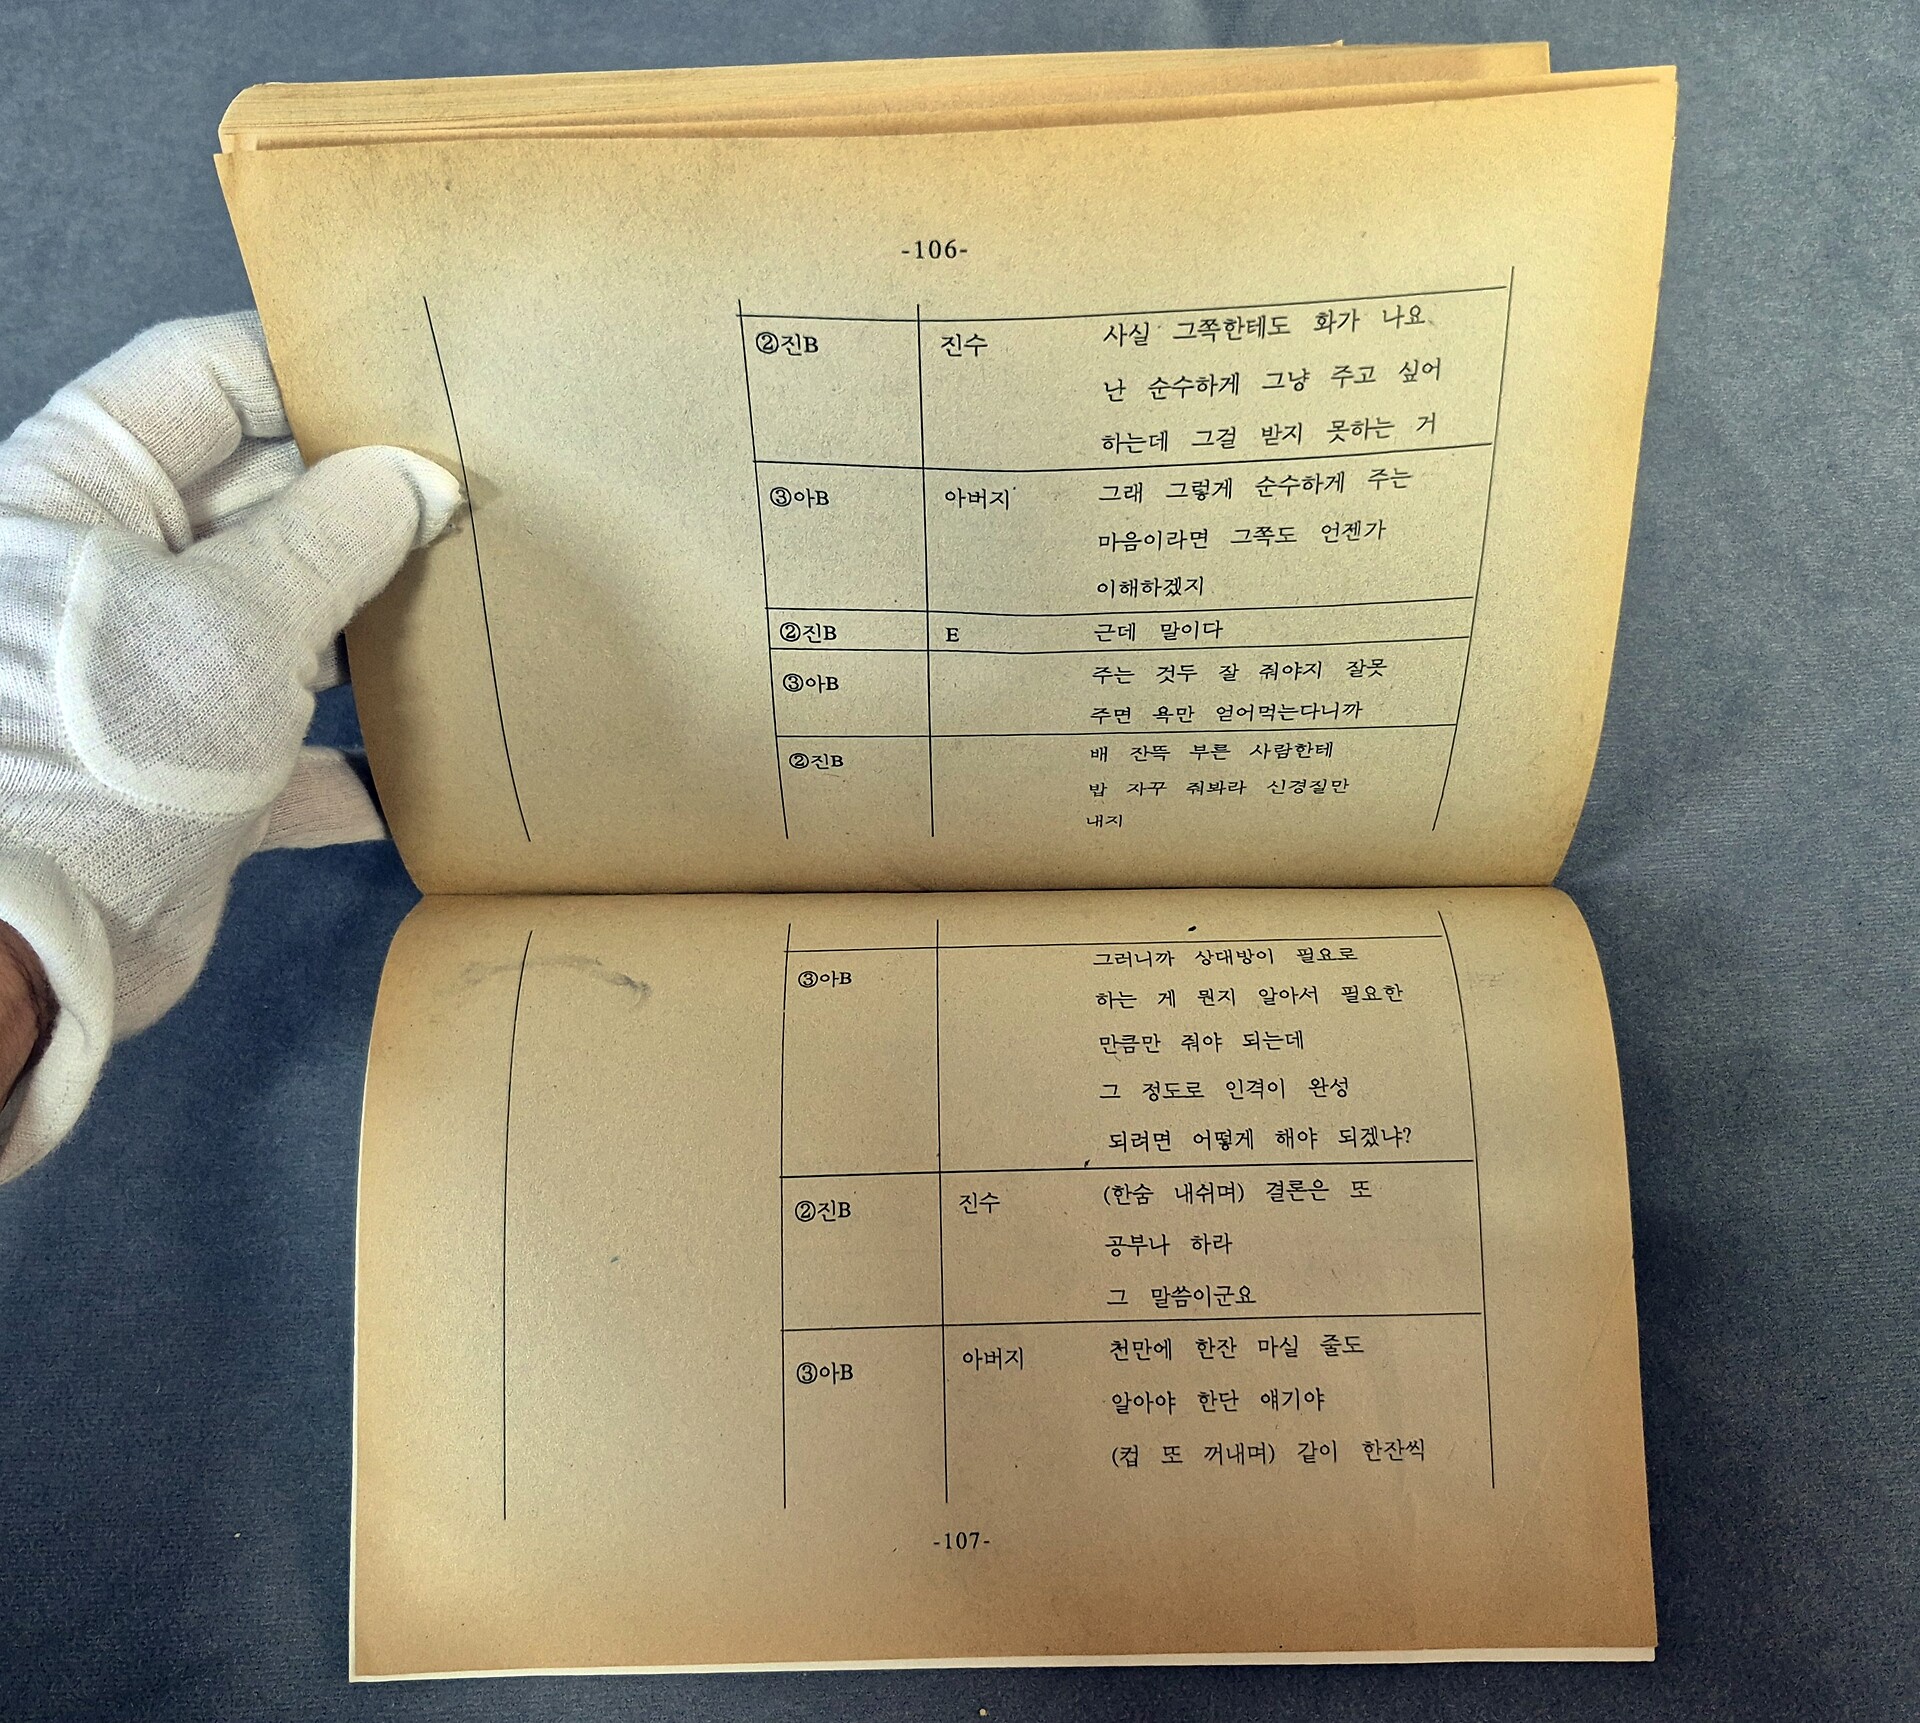 -106-
②진B 진수 사실 그쪽한테도 화가 나요
난 순수하게 그냥 주고 싶어
하는데 그걸 받지 못하는 거
③아B 아버지 그래 그렇게 순수하게 주는
마음이라면 그쪽도 언젠가
이해하겠지
②진B E 근데 말이다
③아B 주는 것두 잘 줘야지 잘못
주면 욕만 얻어먹는다니까
②진B 배 잔뜩 부른 사람한테
밥 자꾸 줘봐라 신경질만
내지
③아B 그러니까 상대방이 필요로
하는 게 뭔지 알아서 필요한
만큼만 줘야 되는데
그 정도로 인격이 완성
되려면 어떻게 해야 되겠냐?
②진B 진수 (한숨 내쉬며) 결론은 또
공부나 하라
그 말씀이군요
③아B 아버지 천만에 한잔 마실 줄도
알아야 한단 얘기야
(컵 또 꺼내며) 같이 한잔씩
-107-